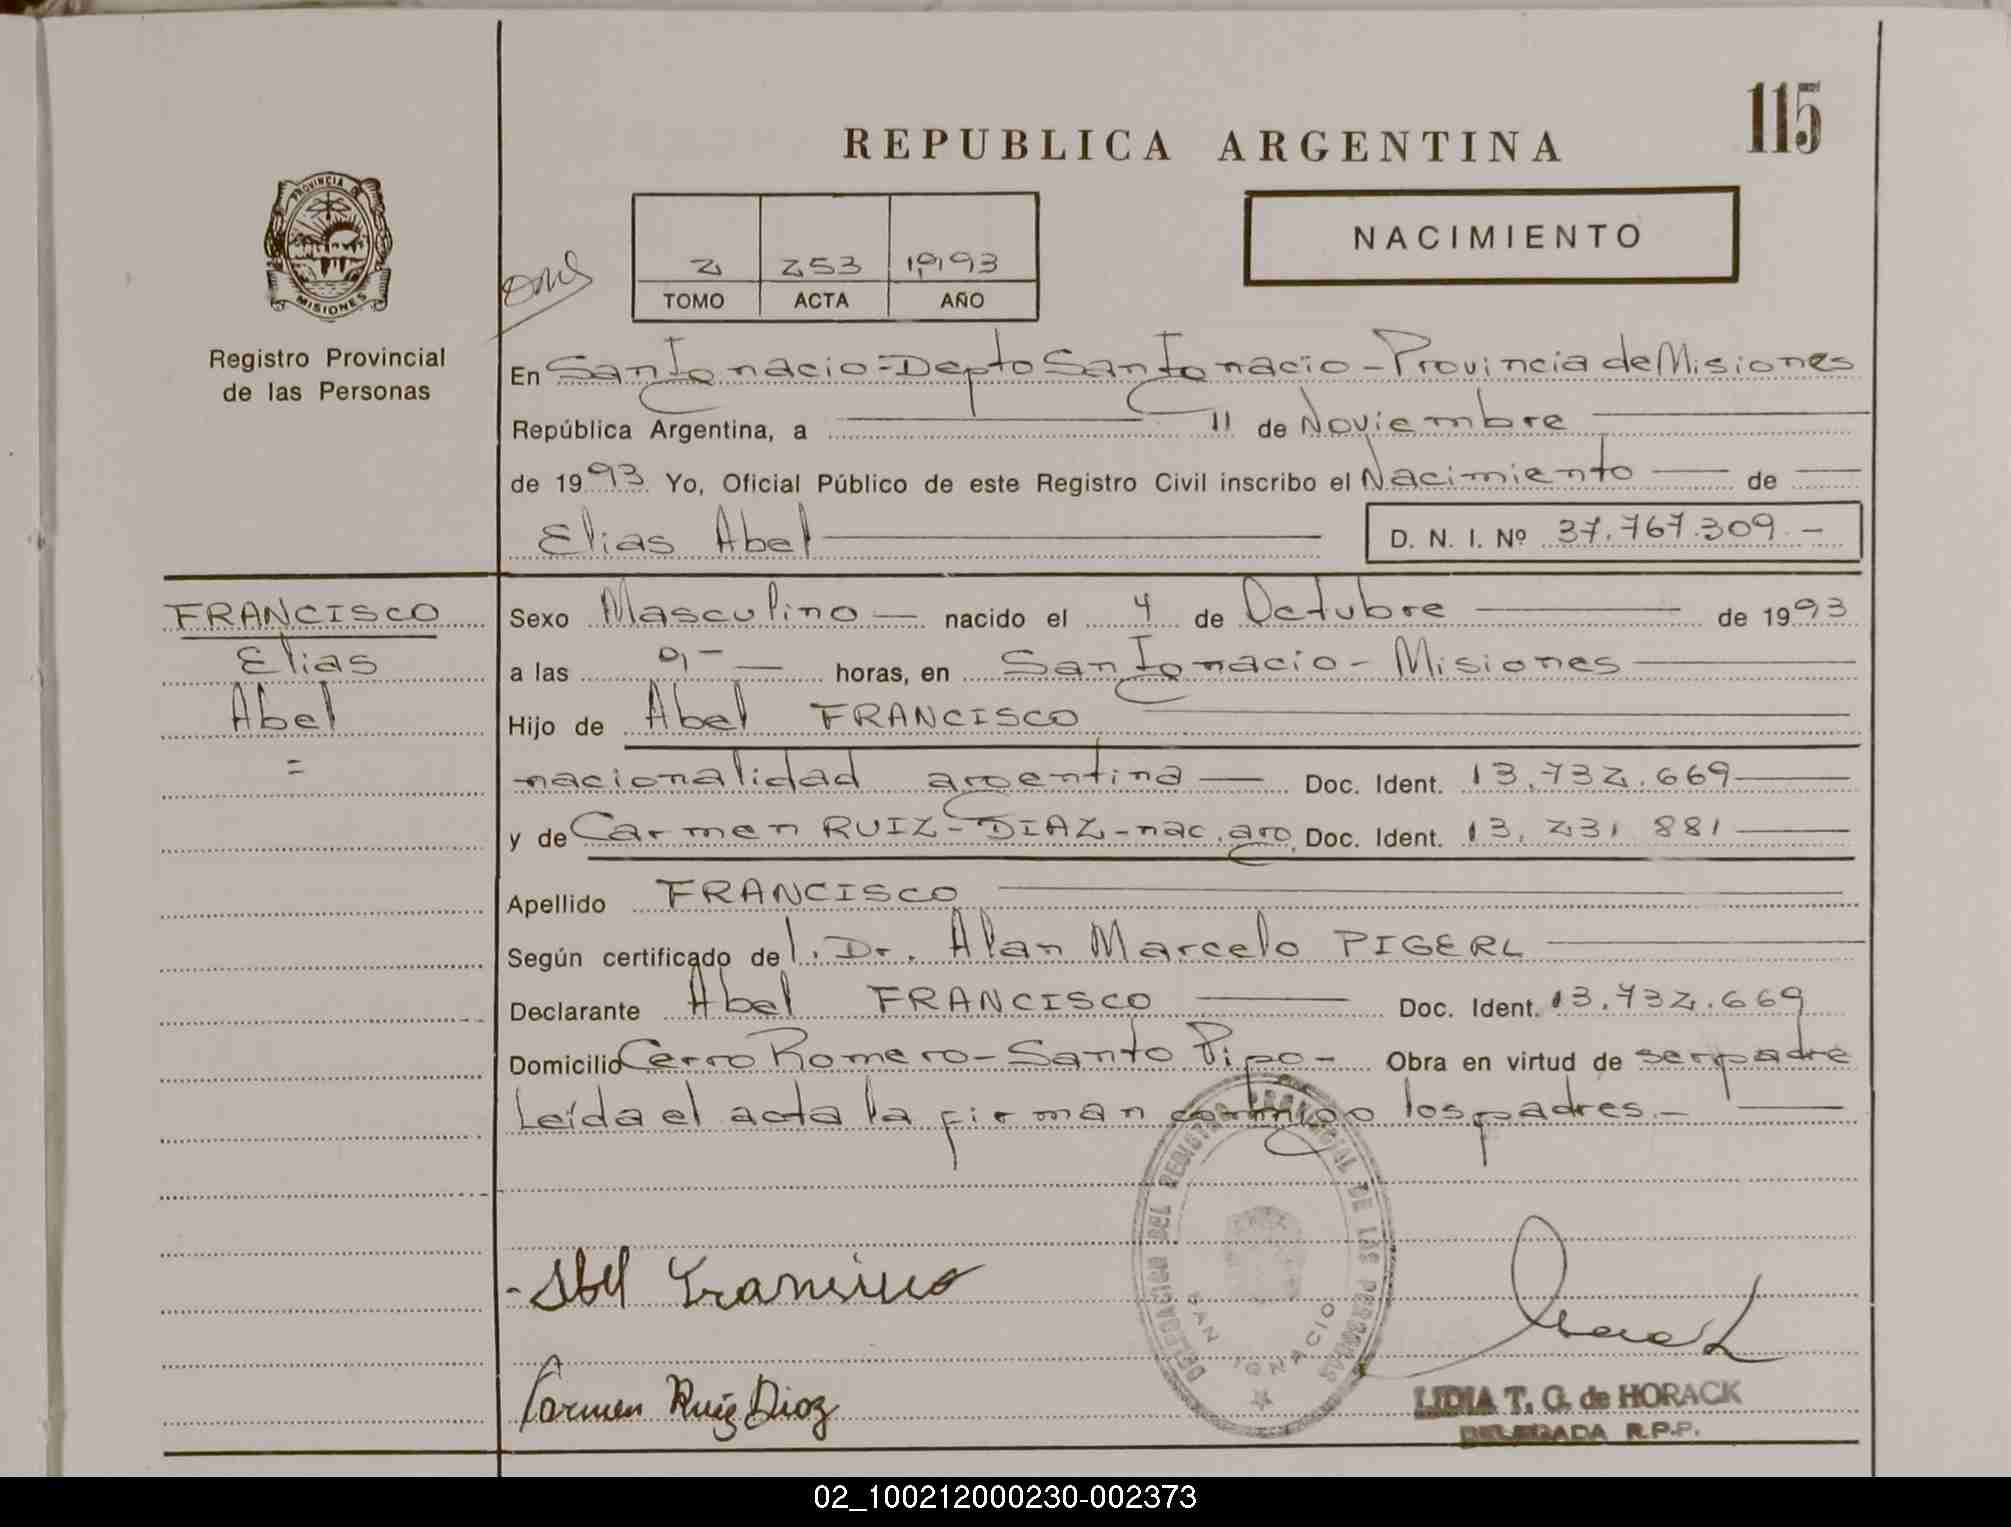 115
REPUBLICA ARGENTINA
PROVINCIA DE
MISIONES
NACIMIENTO
2 253 1993
TOMO ACTA AÑO
Registro Provincial
de las Personas
En San Ignacio - Depto San Ignacio - Provincia de Misiones
República Argentina, a 11 de Noviembre
de 1993 Yo, Oficial Público de este Registro Civil inscribo el Nacimiento de
Elias Abel D. N. I. Nº 37.767.309.-
FRANCISCO
Elias
Abel
=
Sexo Masculino nacido el 4 de Octubre de 1993
a las 9- horas, en San Ignacio - Misiones
Hijo de Abel FRANCISCO
nacionalidad argentina Doc. Ident. 13.732.669
y de Carmen RUIZ-DIAZ-nac.arg. Doc. Ident. 13.231.881
Apellido FRANCISCO
Según certificado del. Dr. Alan Marcelo PIGERL
Declarante Abel FRANCISCO Doc. Ident. 13.732.669
Domicilio Cerro Romero - Santo Pipo - Obra en virtud de ser padre
Leída el acta la firman conmigo los padres.-
DELEGACION DEL REGISTRO PROVINCIAL DE LAS PERSONAS
SAN IGNACIO
Abel Francisco
Carmen Ruiz Diaz
LIDIA T. G. de HORACK
DELEGADA R.P.P.
02_100212000230-002373